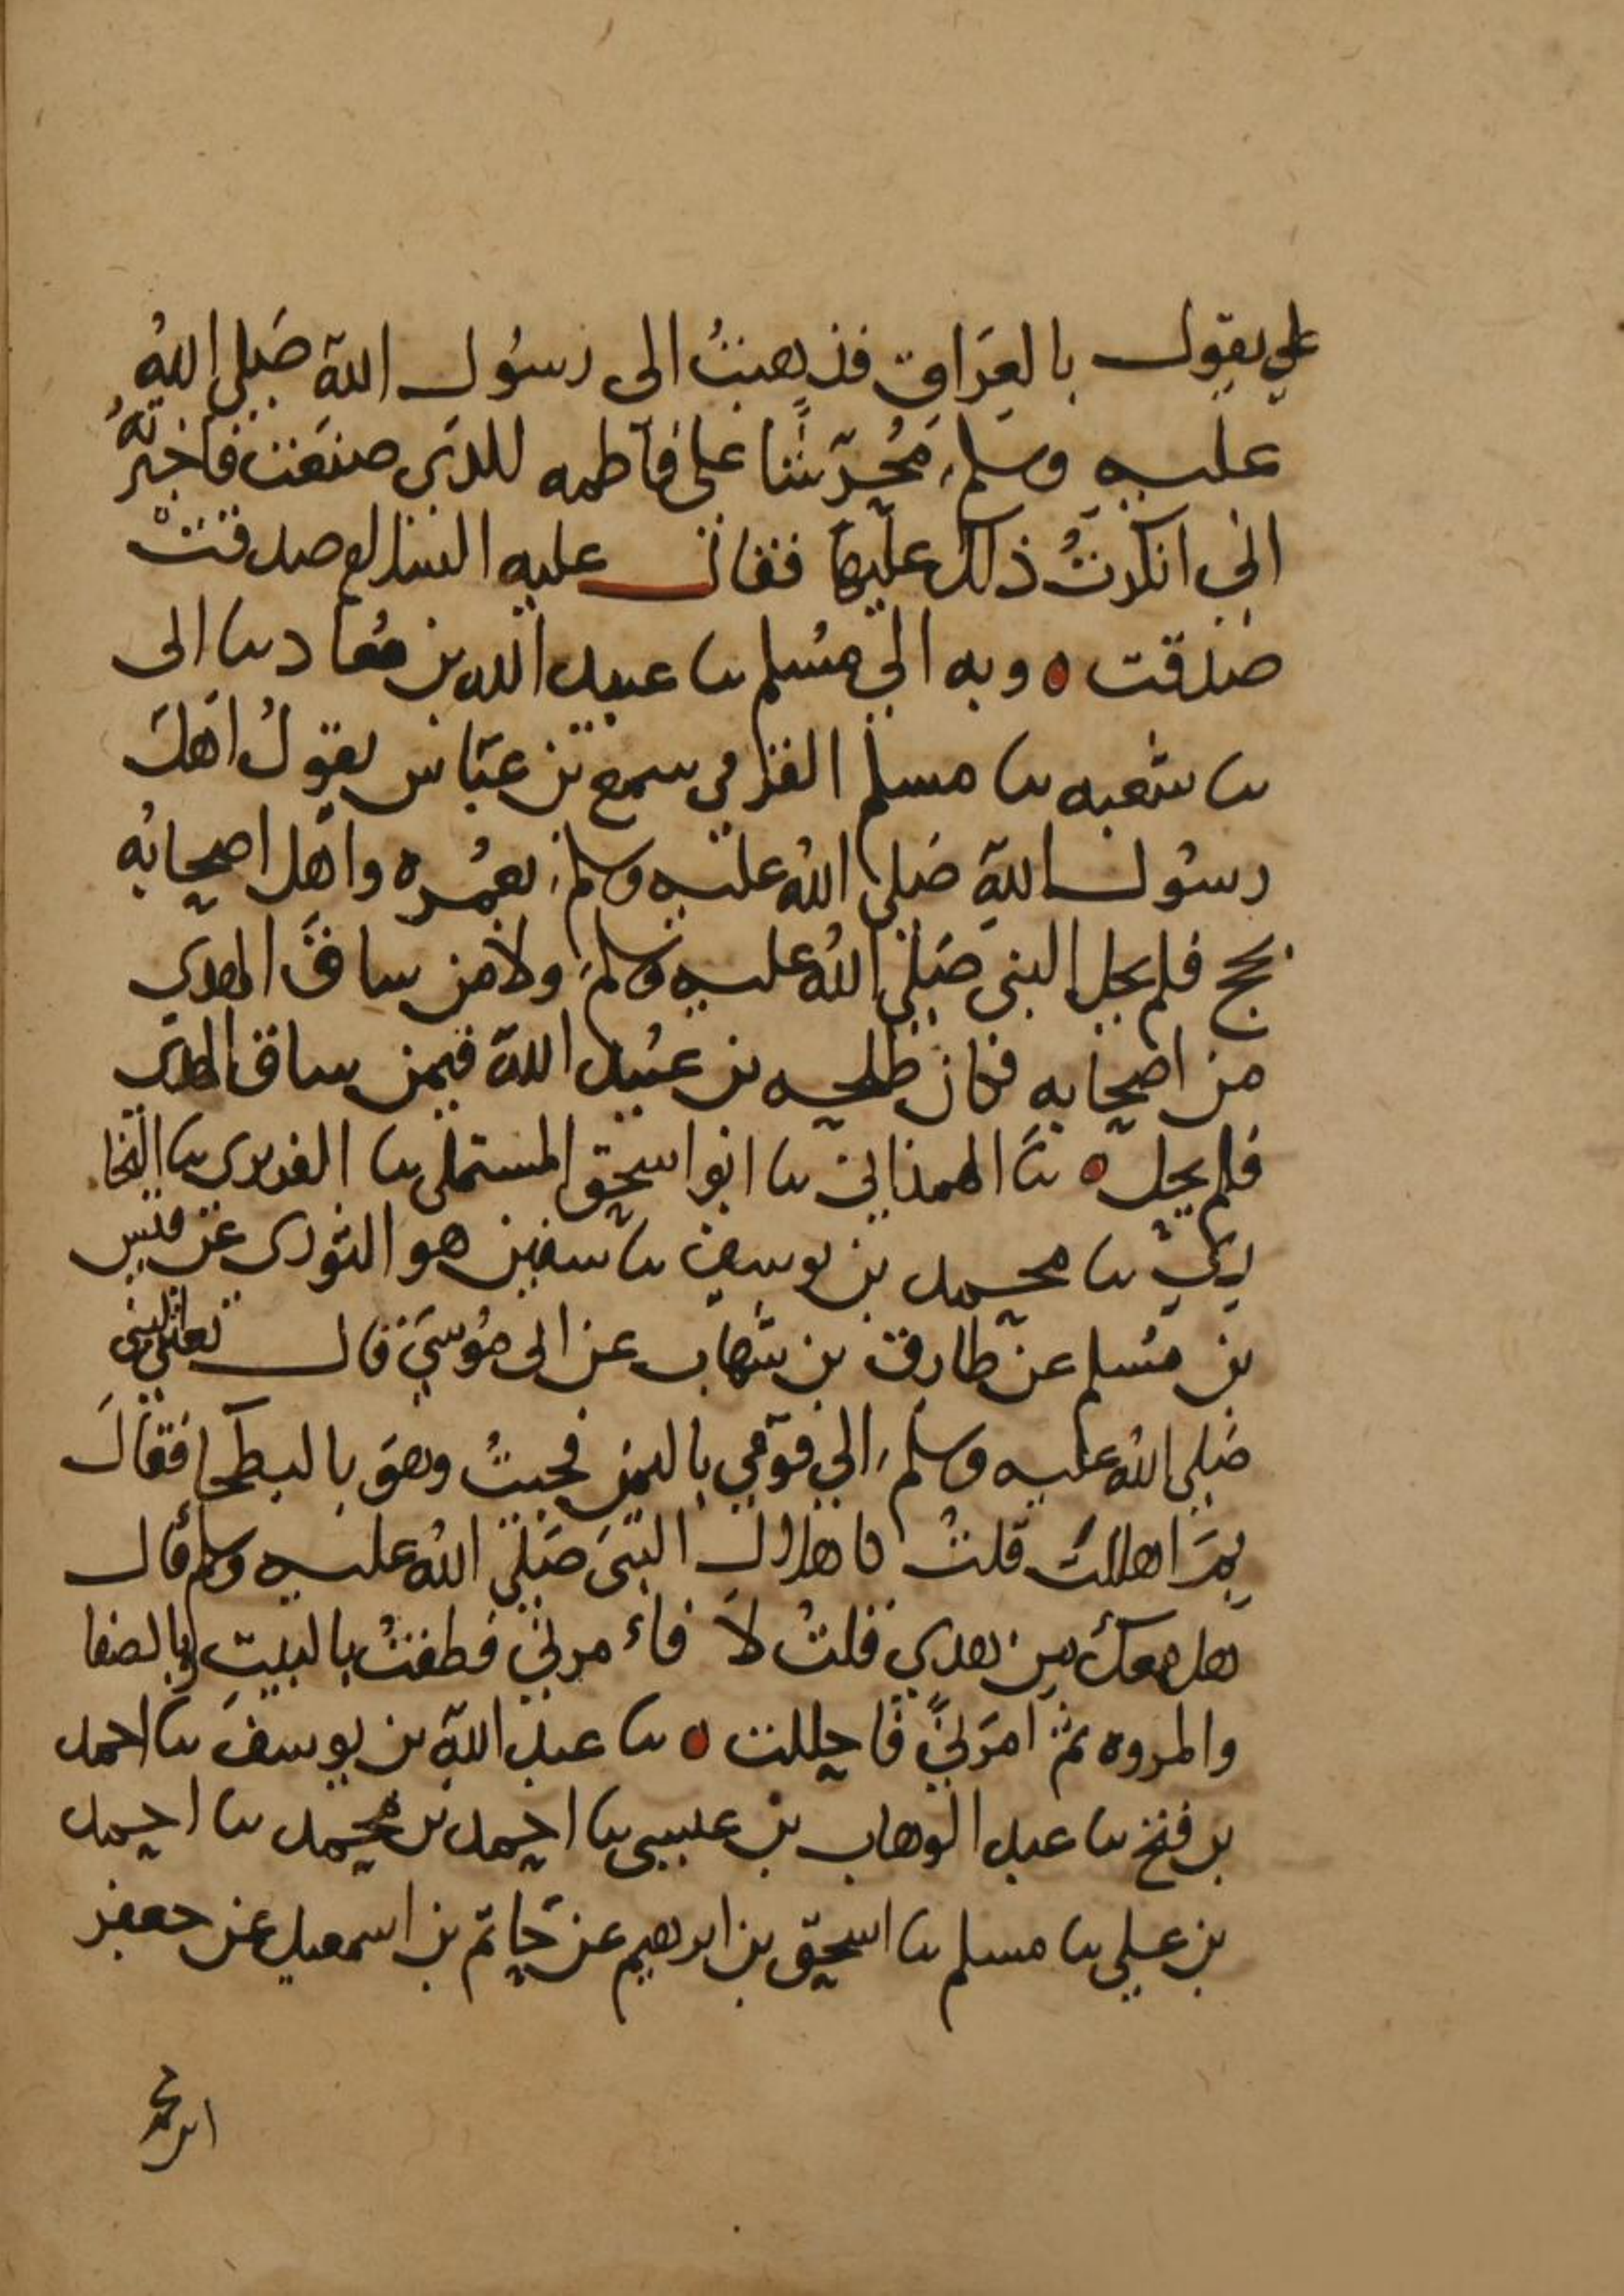 علي يقول بالعراق فذهبتُ الى رسُول اللهِ صَلى اللهُ
عليه وسلم مُحرّشًا على فاطمه للذي صنعَت فاخبرتُهُ
اني انكرتُ ذلك عليها فقال عليه السلام صدقتْ
صدقت ه وبه الى مسُلم نا عبيد الله بن مُعاد نا ابى
نا شعبه نا مسلم القري سمع بن عبّاس يقولُ اهلَ
رسُول اللهِ صَلى اللهُ عليه وسلم بعُمره واهل اصحابُه
بحج فلم يحل النبى صَلى اللهُ عليه وسلم ولا من ساقَ الهدي
من اصحابه فكان طلحه بن عُبيد اللهِ فيمن ساق الهدي
فلم يحل ه نا الهمذاني نا ابو اسحق المستملى نا الفربرى نا البخا
ريّ نا محمد بن يوسف نا سفين هو الثورى عن قيس
بن مسُلم عن طارق بن شهاب عن ابى مُوسَي قال بعثنى النبى
صَلى اللهُ عليه وسلم الي قوَمي باليمن فجيتُ وهوَ بالبطحا فقالَ
بمَ اهللتَ قلتُ كاهلال النبىَ صَلى اللهُ عليه وسلم قال
هل معكَ مِن هدي قلتُ لاَ فاءمرني فطفتُ بالبيتِ وبالصفا
والمروه ثم امَرَنيّ فاحللت ه نا عبد اللهِ بن يوسفَ نا احمد
بن فتح نا عبد الوهاب بن عيسى نا احمد بن محمد نا احمد
بن علي نا مسلم نا اسحق بن ابرهيم عن حَاتم بن اسمعيل عن جعفر